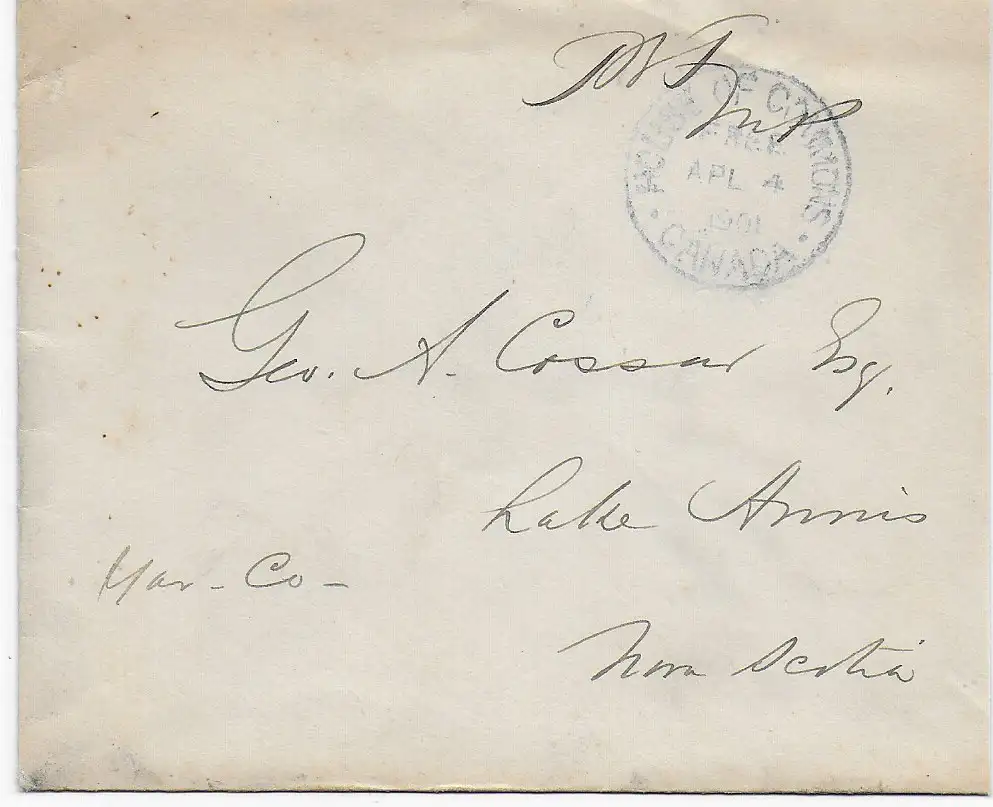 MP
HOUSE OF COMMONS
FREE
APL 4
1901
CANADA
Geo. A. Cossar Esq.
Lake Annis
Yar- Co-
Nova Scotia